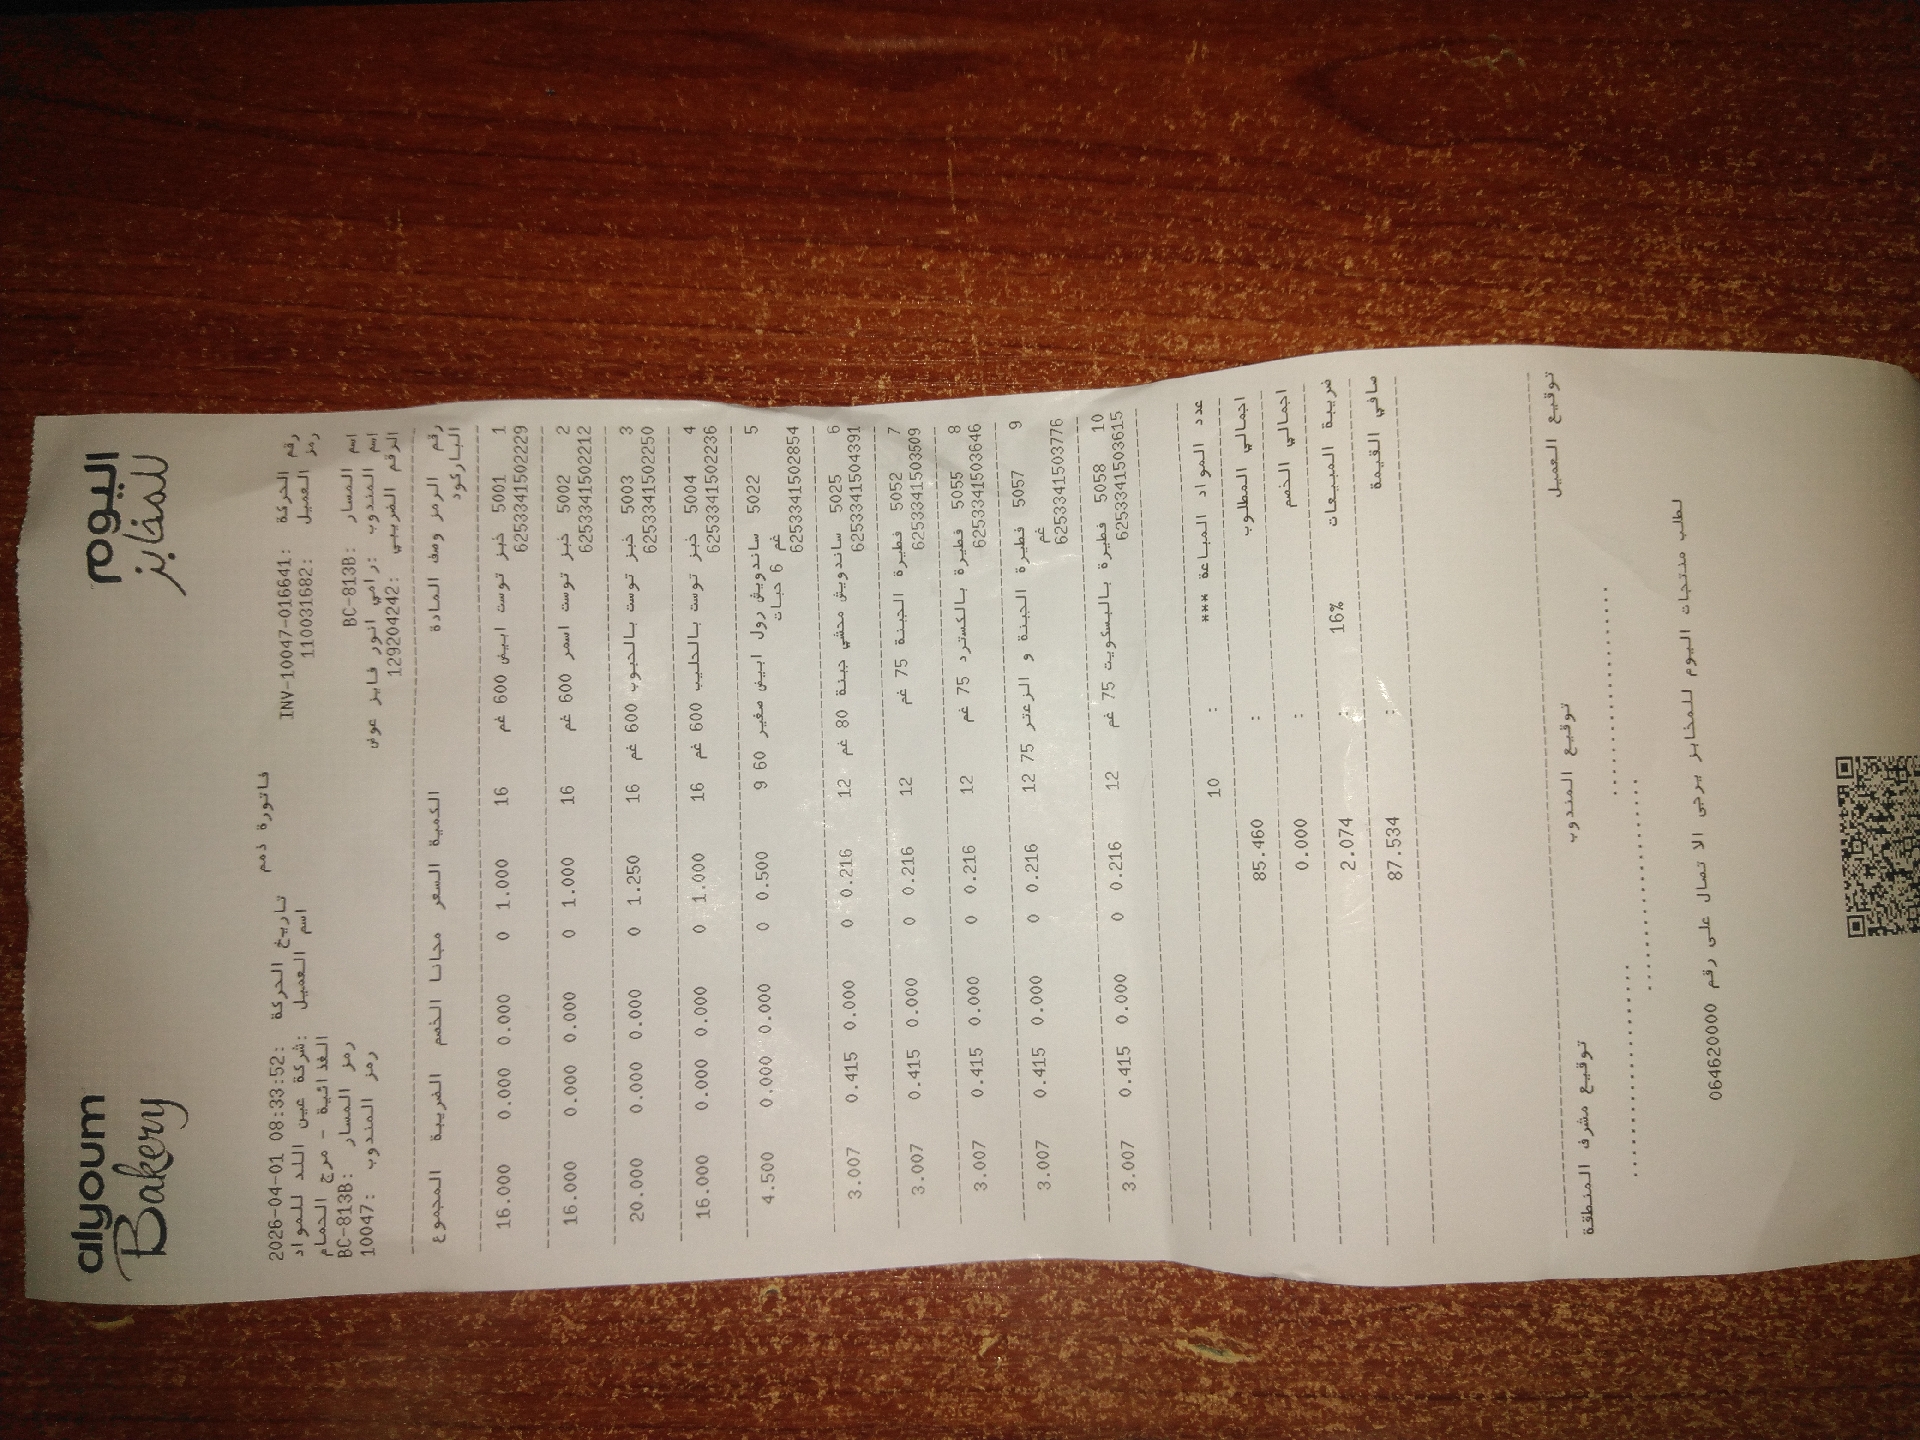 alyoum Bakery اليوم للمخابز
فاتورة ذمم
رقم الحركة :INV-10047-016641 تاريخ الحركة :2026-04-01 08:33:52
رمز العميل :110031682 اسم العميل :شركة عين اللد للمواد
الغذائية - مرج الحمام
اسم المسار :BC-813B رمز المسار :BC-813B
اسم المندوب :رامي انور فايز عوض رمز المندوب :10047
الرقم الضريبي :129204242
رقم الرمز وصف المادة الكمية السعر مجانا الخصم الضريبة المجموع
الباركود
1 5001 خبز توست ابيض 600 غم 16 1.000 0 0.000 0.000 16.000
6253341502229
2 5002 خبز توست اسمر 600 غم 16 1.000 0 0.000 0.000 16.000
6253341502212
3 5003 خبز توست بالحبوب 600 غم 16 1.250 0 0.000 0.000 20.000
6253341502250
4 5004 خبز توست بالحليب 600 غم 16 1.000 0 0.000 0.000 16.000
6253341502236
5 5022 ساندويش رول ابيض صغير 60 9 0.500 0 0.000 0.000 4.500
غم 6 حبات
6253341502854
6 5025 ساندويش محشي جبنة 80 غم 12 0.216 0 0.000 0.415 3.007
6253341504391
7 5052 فطيرة الجبنة 75 غم 12 0.216 0 0.000 0.415 3.007
6253341503509
8 5055 فطيرة بالكسترد 75 غم 12 0.216 0 0.000 0.415 3.007
6253341503646
9 5057 فطيرة الجبنة و الزعتر 75 12 0.216 0 0.000 0.415 3.007
غم
6253341503776
10 5058 فطيرة بالبسكويت 75 غم 12 0.216 0 0.000 0.415 3.007
6253341503615
عدد المواد المباعة *** : 10
اجمالي المطلوب : 85.460
اجمالي الخصم : 0.000
ضريبة المبيعات 16% : 2.074
صافي القيمة : 87.534
توقيع العميل توقيع المندوب توقيع مشرف المنطقة
لطلب منتجات اليوم للمخابز يرجى الا تصال على رقم 064620000